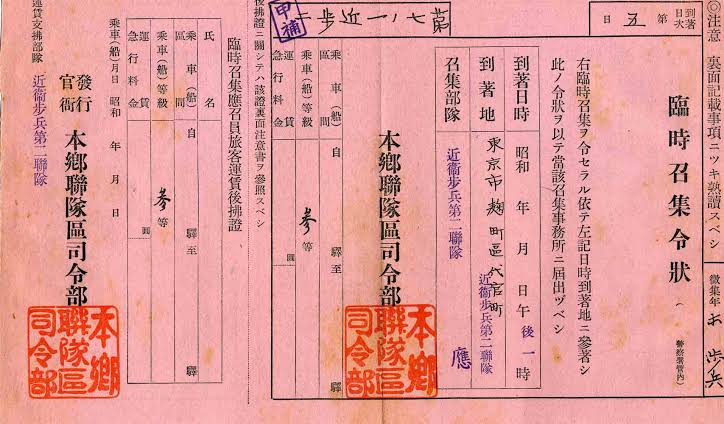 ◎注意 裏面記載事項ニツキ熟讀スベシ
徵集年
お 歩兵
到著日次 第五日
臨時召集令狀
(警察署管內)
右臨時召集ヲ令セラル依テ左記日時到著地ニ參著シ
此ノ令狀ヲ以テ當該召集事務所ニ屆出ヅベシ
到著日時 昭和 年 月 日午後一時
到著地 東京市麴町區代官町
近衞步兵第二聯隊
召集部隊 近衞步兵第二聯隊 應
本鄉聯隊區司令部
本鄉聯隊區司令部
第七ノ一近步二
申補
乘車(船)區間 自 驛至 驛
乘車(船)等級 參等
運賃 圓
急行料金
後拂證ニ關シテハ該證裏面注意書ヲ參照スベシ
臨時召集應召員旅客運賃後拂證
氏名
乘車(船)區間 自 驛至 驛
乘車(船)等級 參等
運賃 圓
急行料金
發行官衙 本鄉聯隊區司令部
本鄉聯隊區司令部
乘車(船)月日 昭和 年 月 日
運賃支拂部隊 近衞步兵第二聯隊